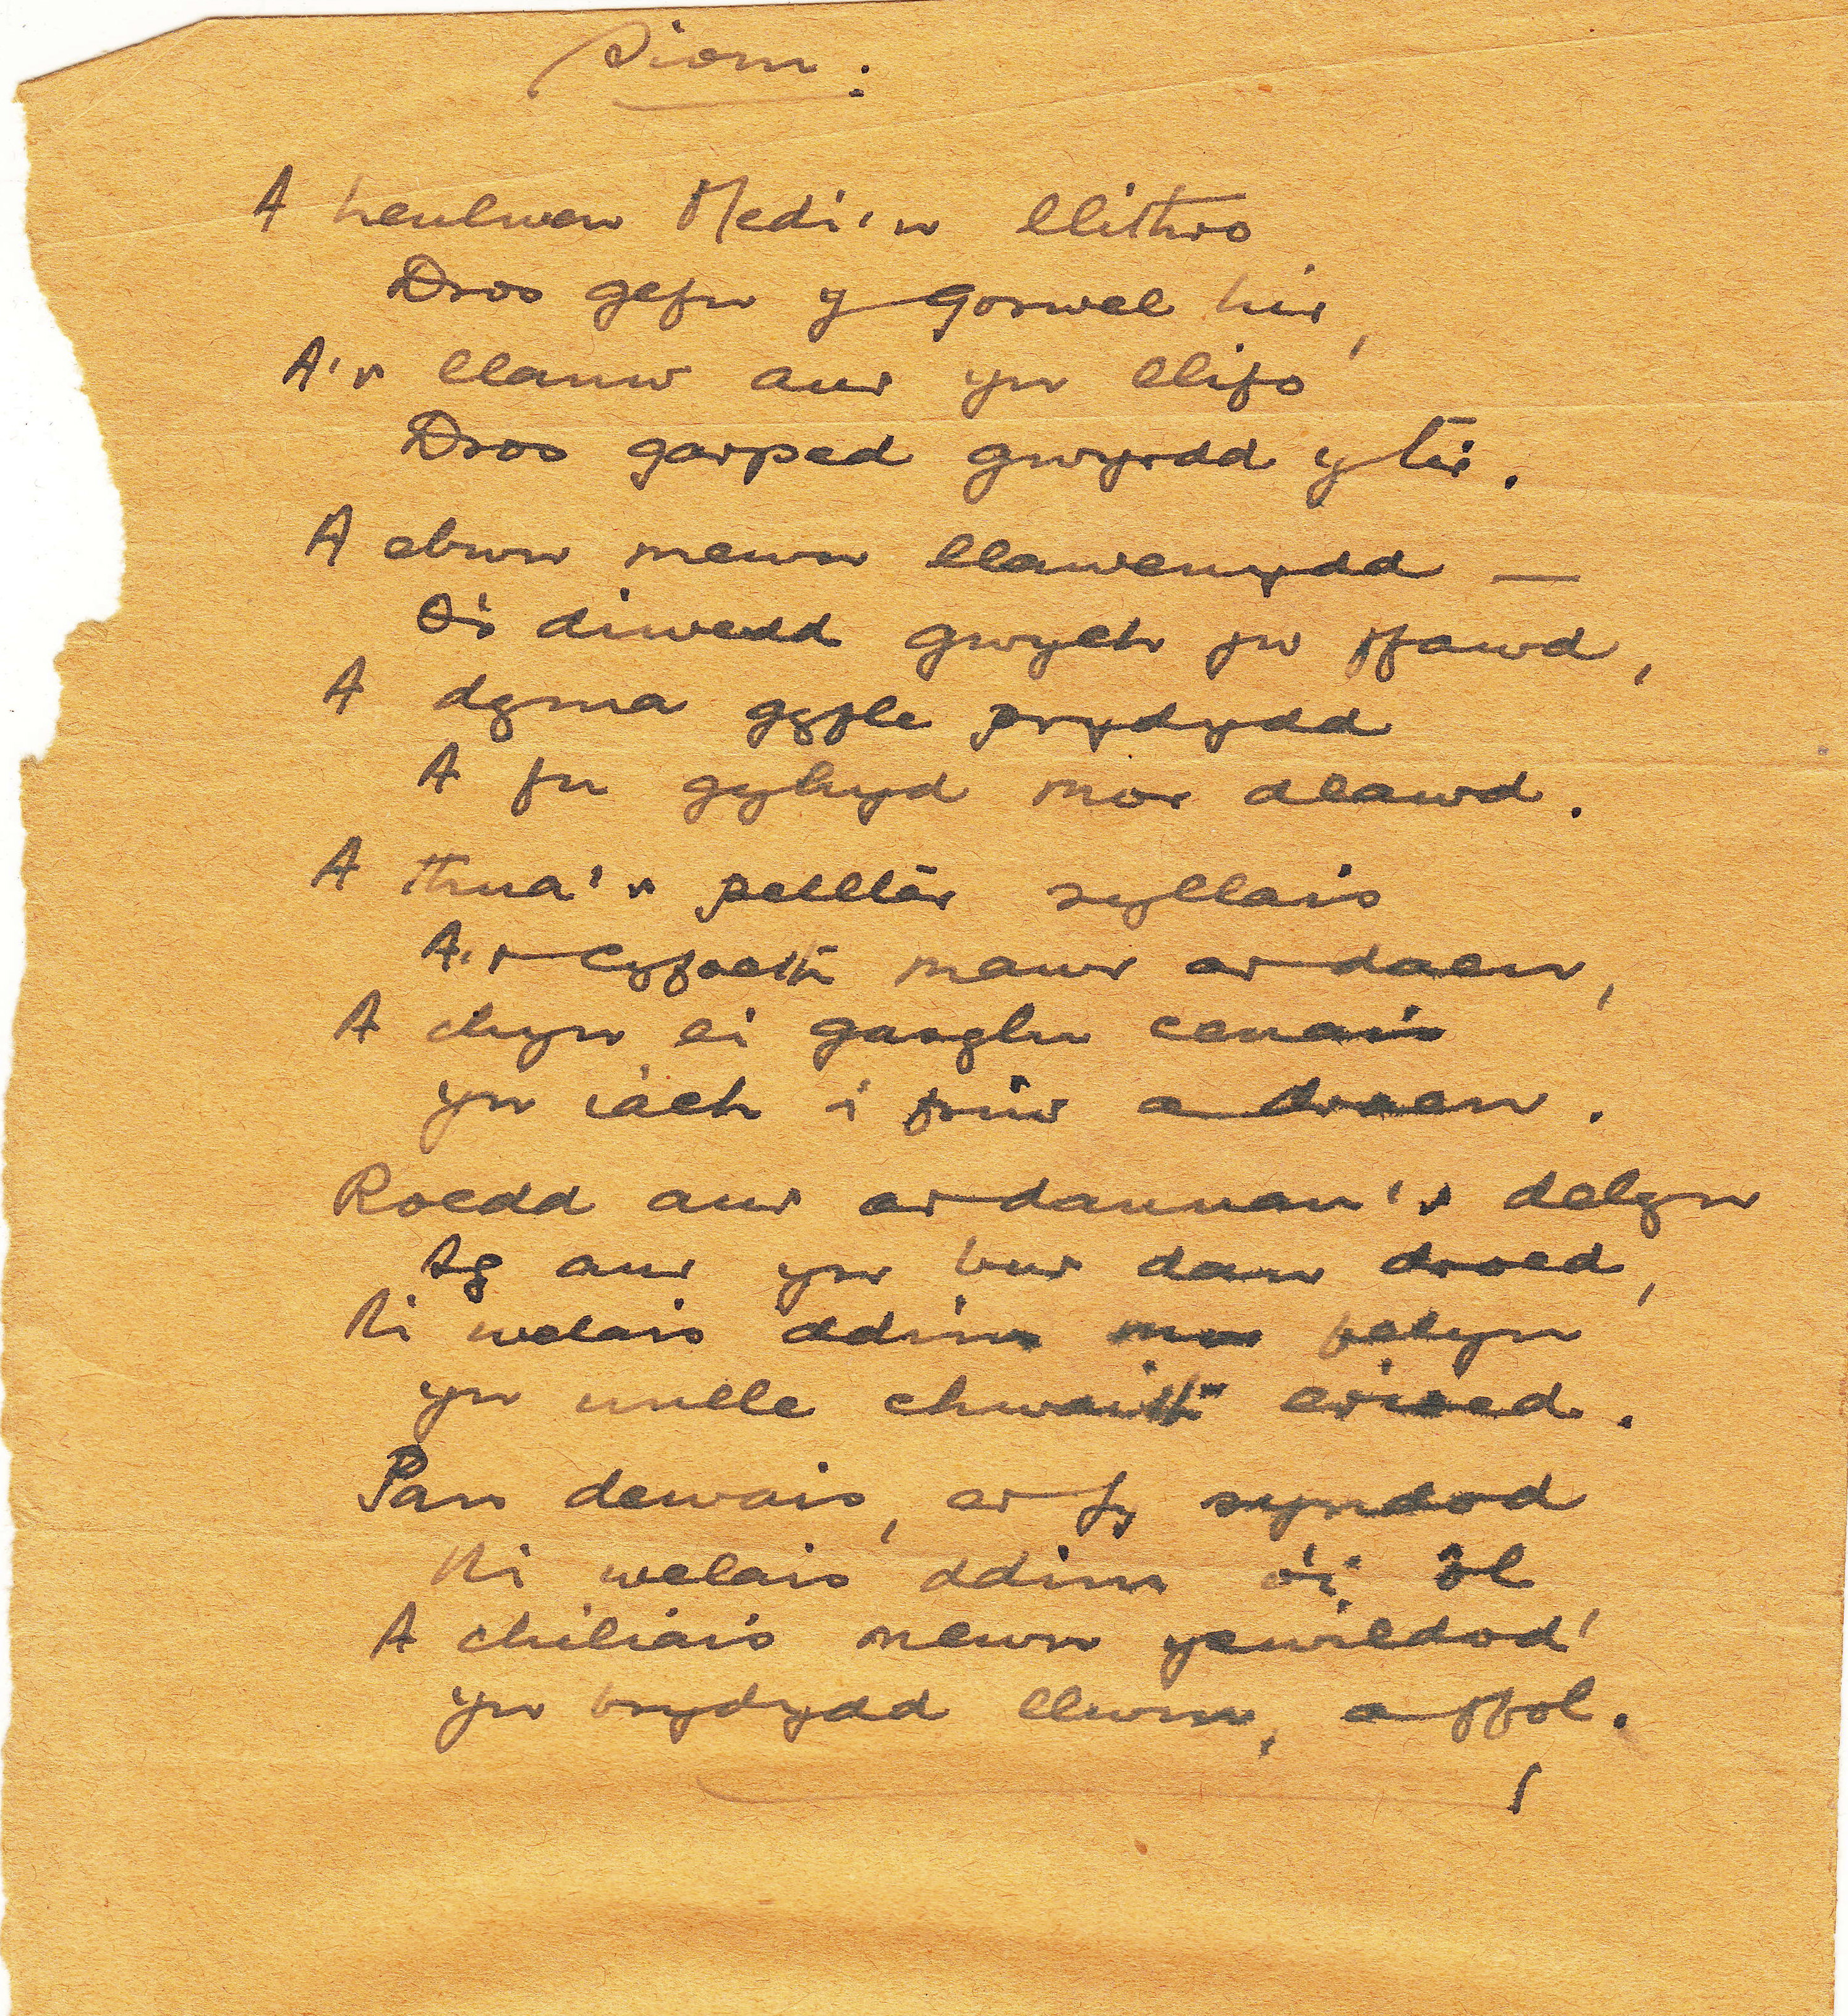 Siom.
A heulwen Medi'n llithro
Dros gefn y gorwel hir,
A'r llanw aur yn llifo
Dros garped gwyrdd y tir.
A ebwn mewn llawenydd —
O's diwedd gwych yw ffawd,
A dyma gyfle prydydd
A fu gyhyd mor dlawd.
A thua'r pellter syllais
A'r cyfoeth mawr ar daen,
A chyn ei gasglu cenais
yn iach i friw a draen.
Roedd aur ar dannau'r delyn
Ag aur yn bur dan droed,
Ni welais ddim mor felyn
yn unlle chwaith erioed.
Pan dewais, er fy syndod
Ni welais ddim o'i ôl
A chiliais mewn ycwildod'
yn brydydd llwm, a ffôl.